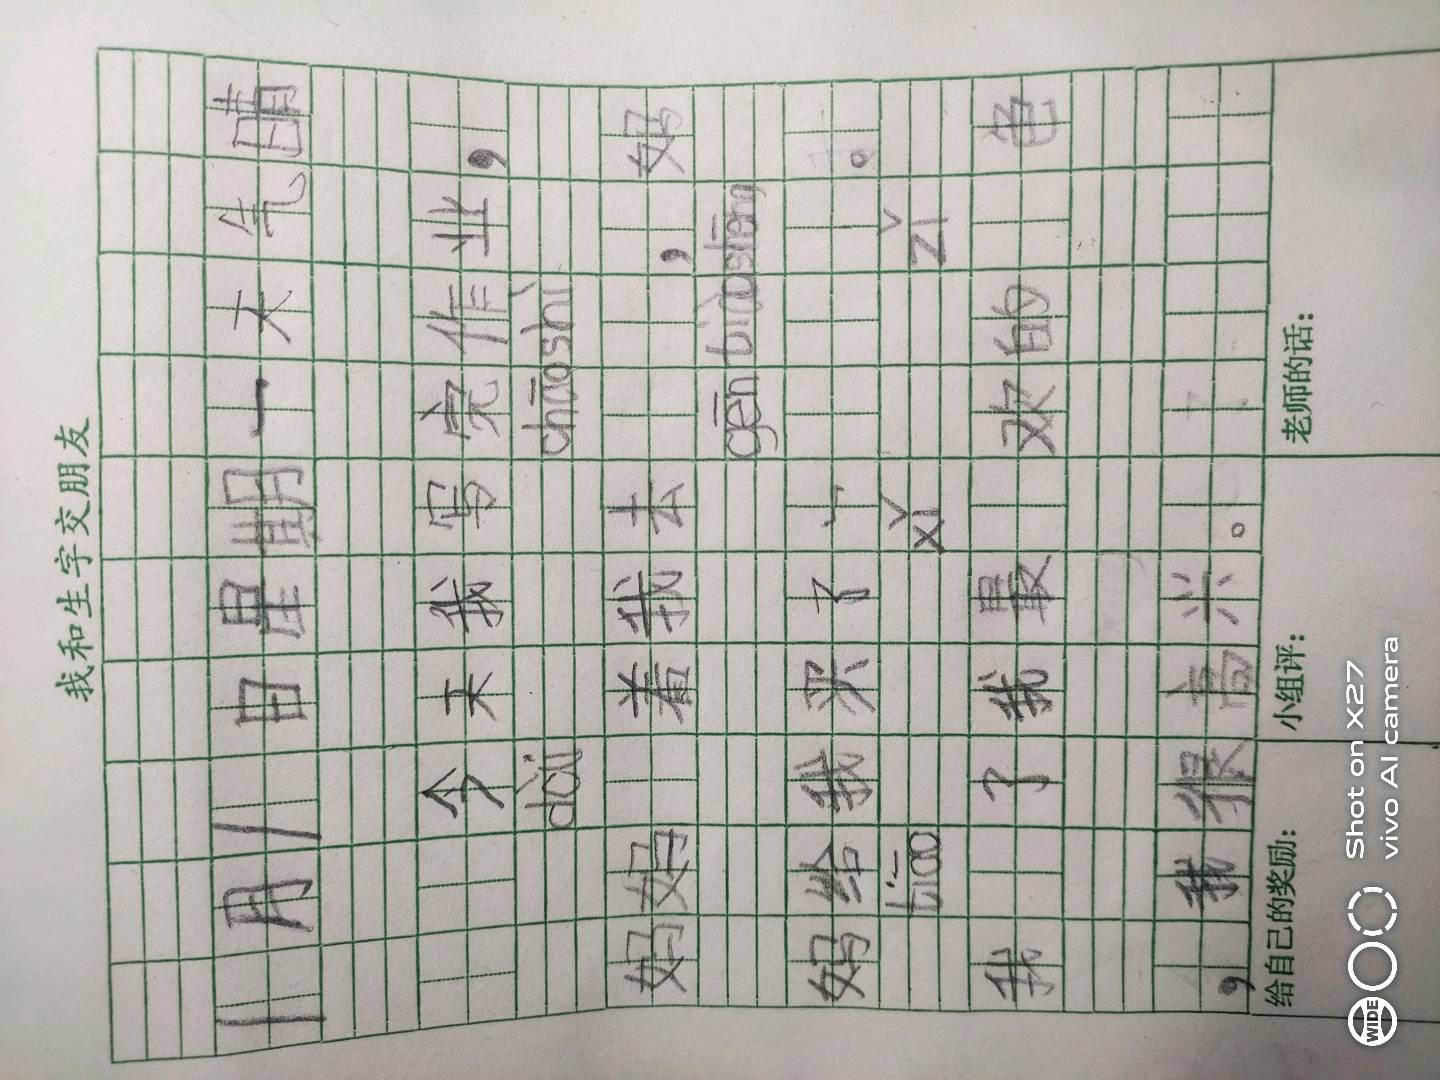 我和生字交朋友
1月1日星期一天气晴
今天我写完作业，
dài chāoshì
妈妈 着我去 ，妈
gēn tiàoshēng
妈给我买了一 。
tiāo xǐ zǐ
我 了我最 欢的 色
，我很高兴。
给自己的奖励： 小组评： 老师的话：
Shot on X27
vivo AI camera
WIDE